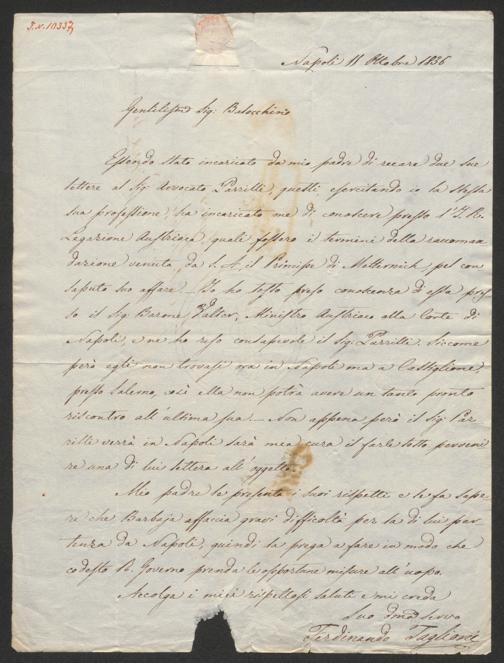 J.N. 10337
Napoli 11 Ottobre 1836
Gentilissmo Sig: Balocchino
Essendo stato incaricato da mio padre di recare due sue
lettere al Sig: Avvocato Parrilli, questi, esercitando io la stessa
sua professione, ha incaricato me di conoscere presso l'I. R.
Legazione Austriaca, quali fossero i termini della raccoman
dazione venuta da S. A. il Principe di Metternich, pel con
saputo suo affare. Io ho tosto preso conoscenza d'essa pres
so il Sig: Barone, Ministro Austriaco alla Corte di
Napoli, e ne ho reso consapevole il Sig: Parrilli. Siccome
però egli non trovasi ora in Napoli ma a Castiglione,
presso Salerno, così Ella non potrà avere un tanto pronto
riscontro all'ultima sua. Non appena però il Sig: Par
rilli verrà in Napoli sarà mia cura il farle tosto perveni
re una di lui lettera all'oggetto.
Mio padre le presenta i suoi rispetti e le fa sape
re che Barbaja affaccia gravi difficoltà per la di lui par
tenza da Napoli, quindi la prega a fare in modo che
codesto R. Governo prenda le opportune misure all'uopo.
Accolga i miei rispettosi saluti e mi creda
Suo Servo
Ferdinando Taglioni